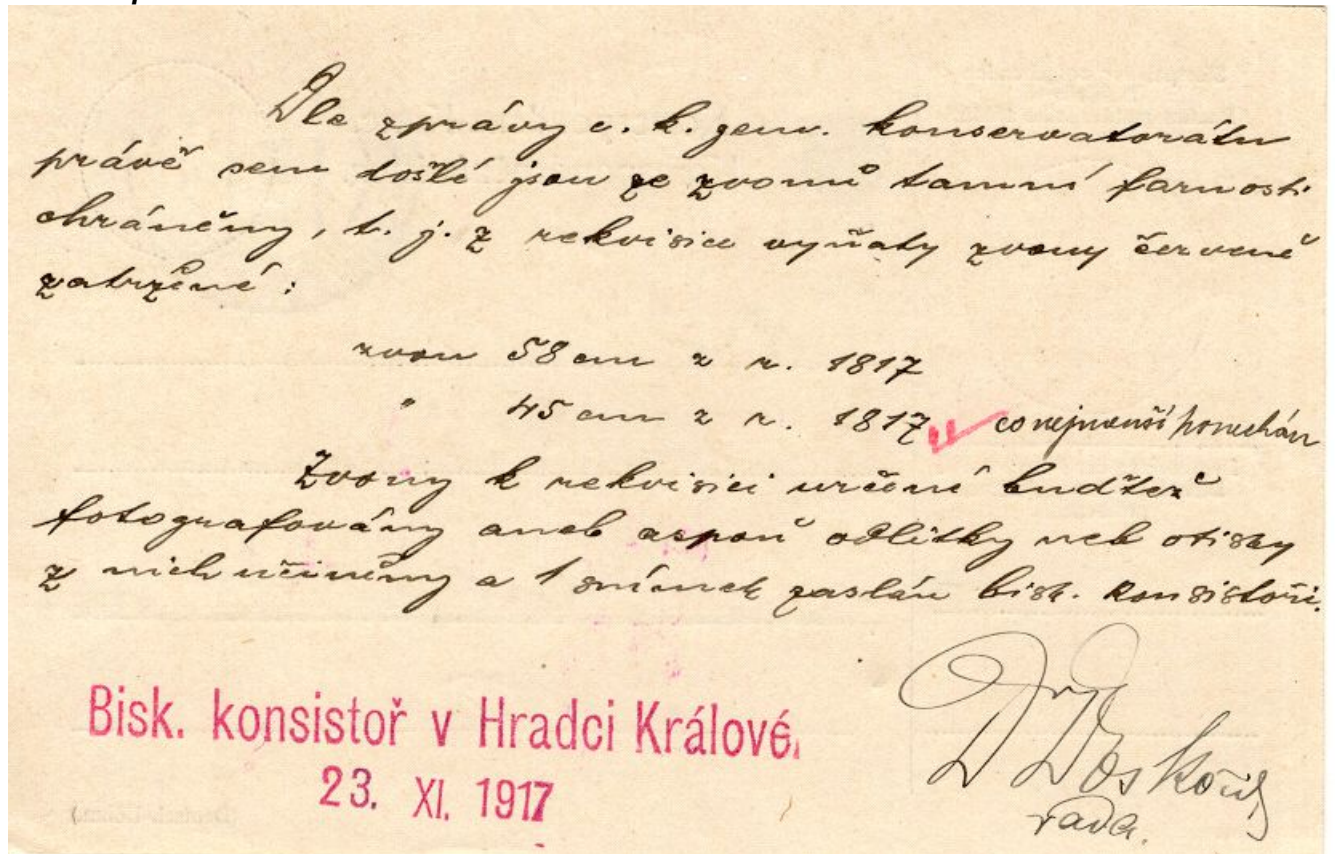 Dle zprávy c. k. gen. konservatorátu
právě sem došlé jsou ze zvonů tamní farnosti
chráněny, t. j. z rekvisice vyňaty zvony červeně
zatržené:
zvon 58 cm z r. 1817
" 45 cm z r. 1817 co nejmenší ponechán
Zvony k rekvisici určené buďtež
fotografovány aneb aspoň odlitky neb otisky
z nich učiněny a 1 snímek zaslán bisk. konsistoři.
Bisk. konsistoř v Hradci Králové.
23. XI. 1917
Dr Doskočil
rada.